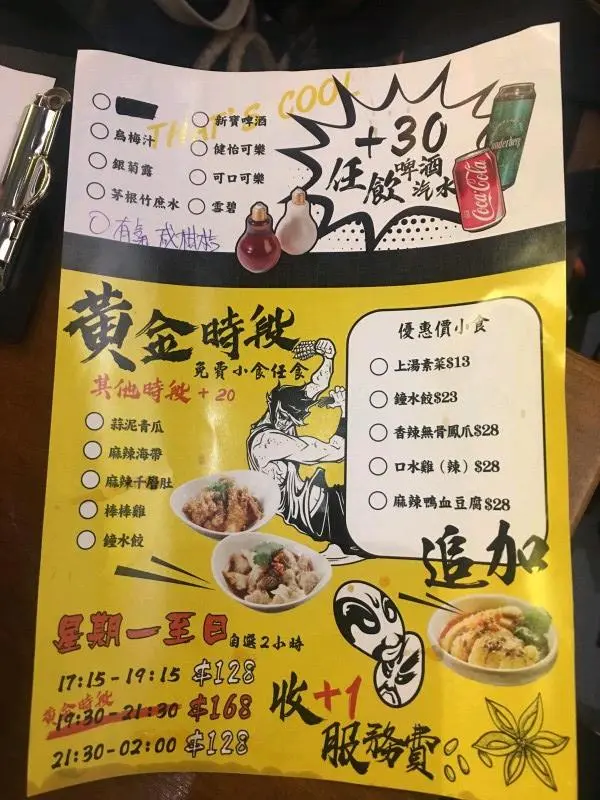 THAT'S COOL
烏梅汁
銀菊露
茅根竹庶水
新寶啤酒
健怡可樂
可口可樂
雪碧
+30
任飲
啤酒
汽水
Coca-Cola
黃金時段
免費小食任食
其他時段 + 20
蒜泥青瓜
麻辣海帶
麻辣千層肚
棒棒雞
鐘水餃
優惠價小食
上湯素菜$13
鐘水餃$23
香辣無骨鳳爪$28
口水雞（辣）$28
麻辣鴨血豆腐$28
追加
星期一至日
自選2小時
17:15-19:15 $128
黃金時段
19:30-21:30 $168
21:30-02:00 $128
收+1
服務費